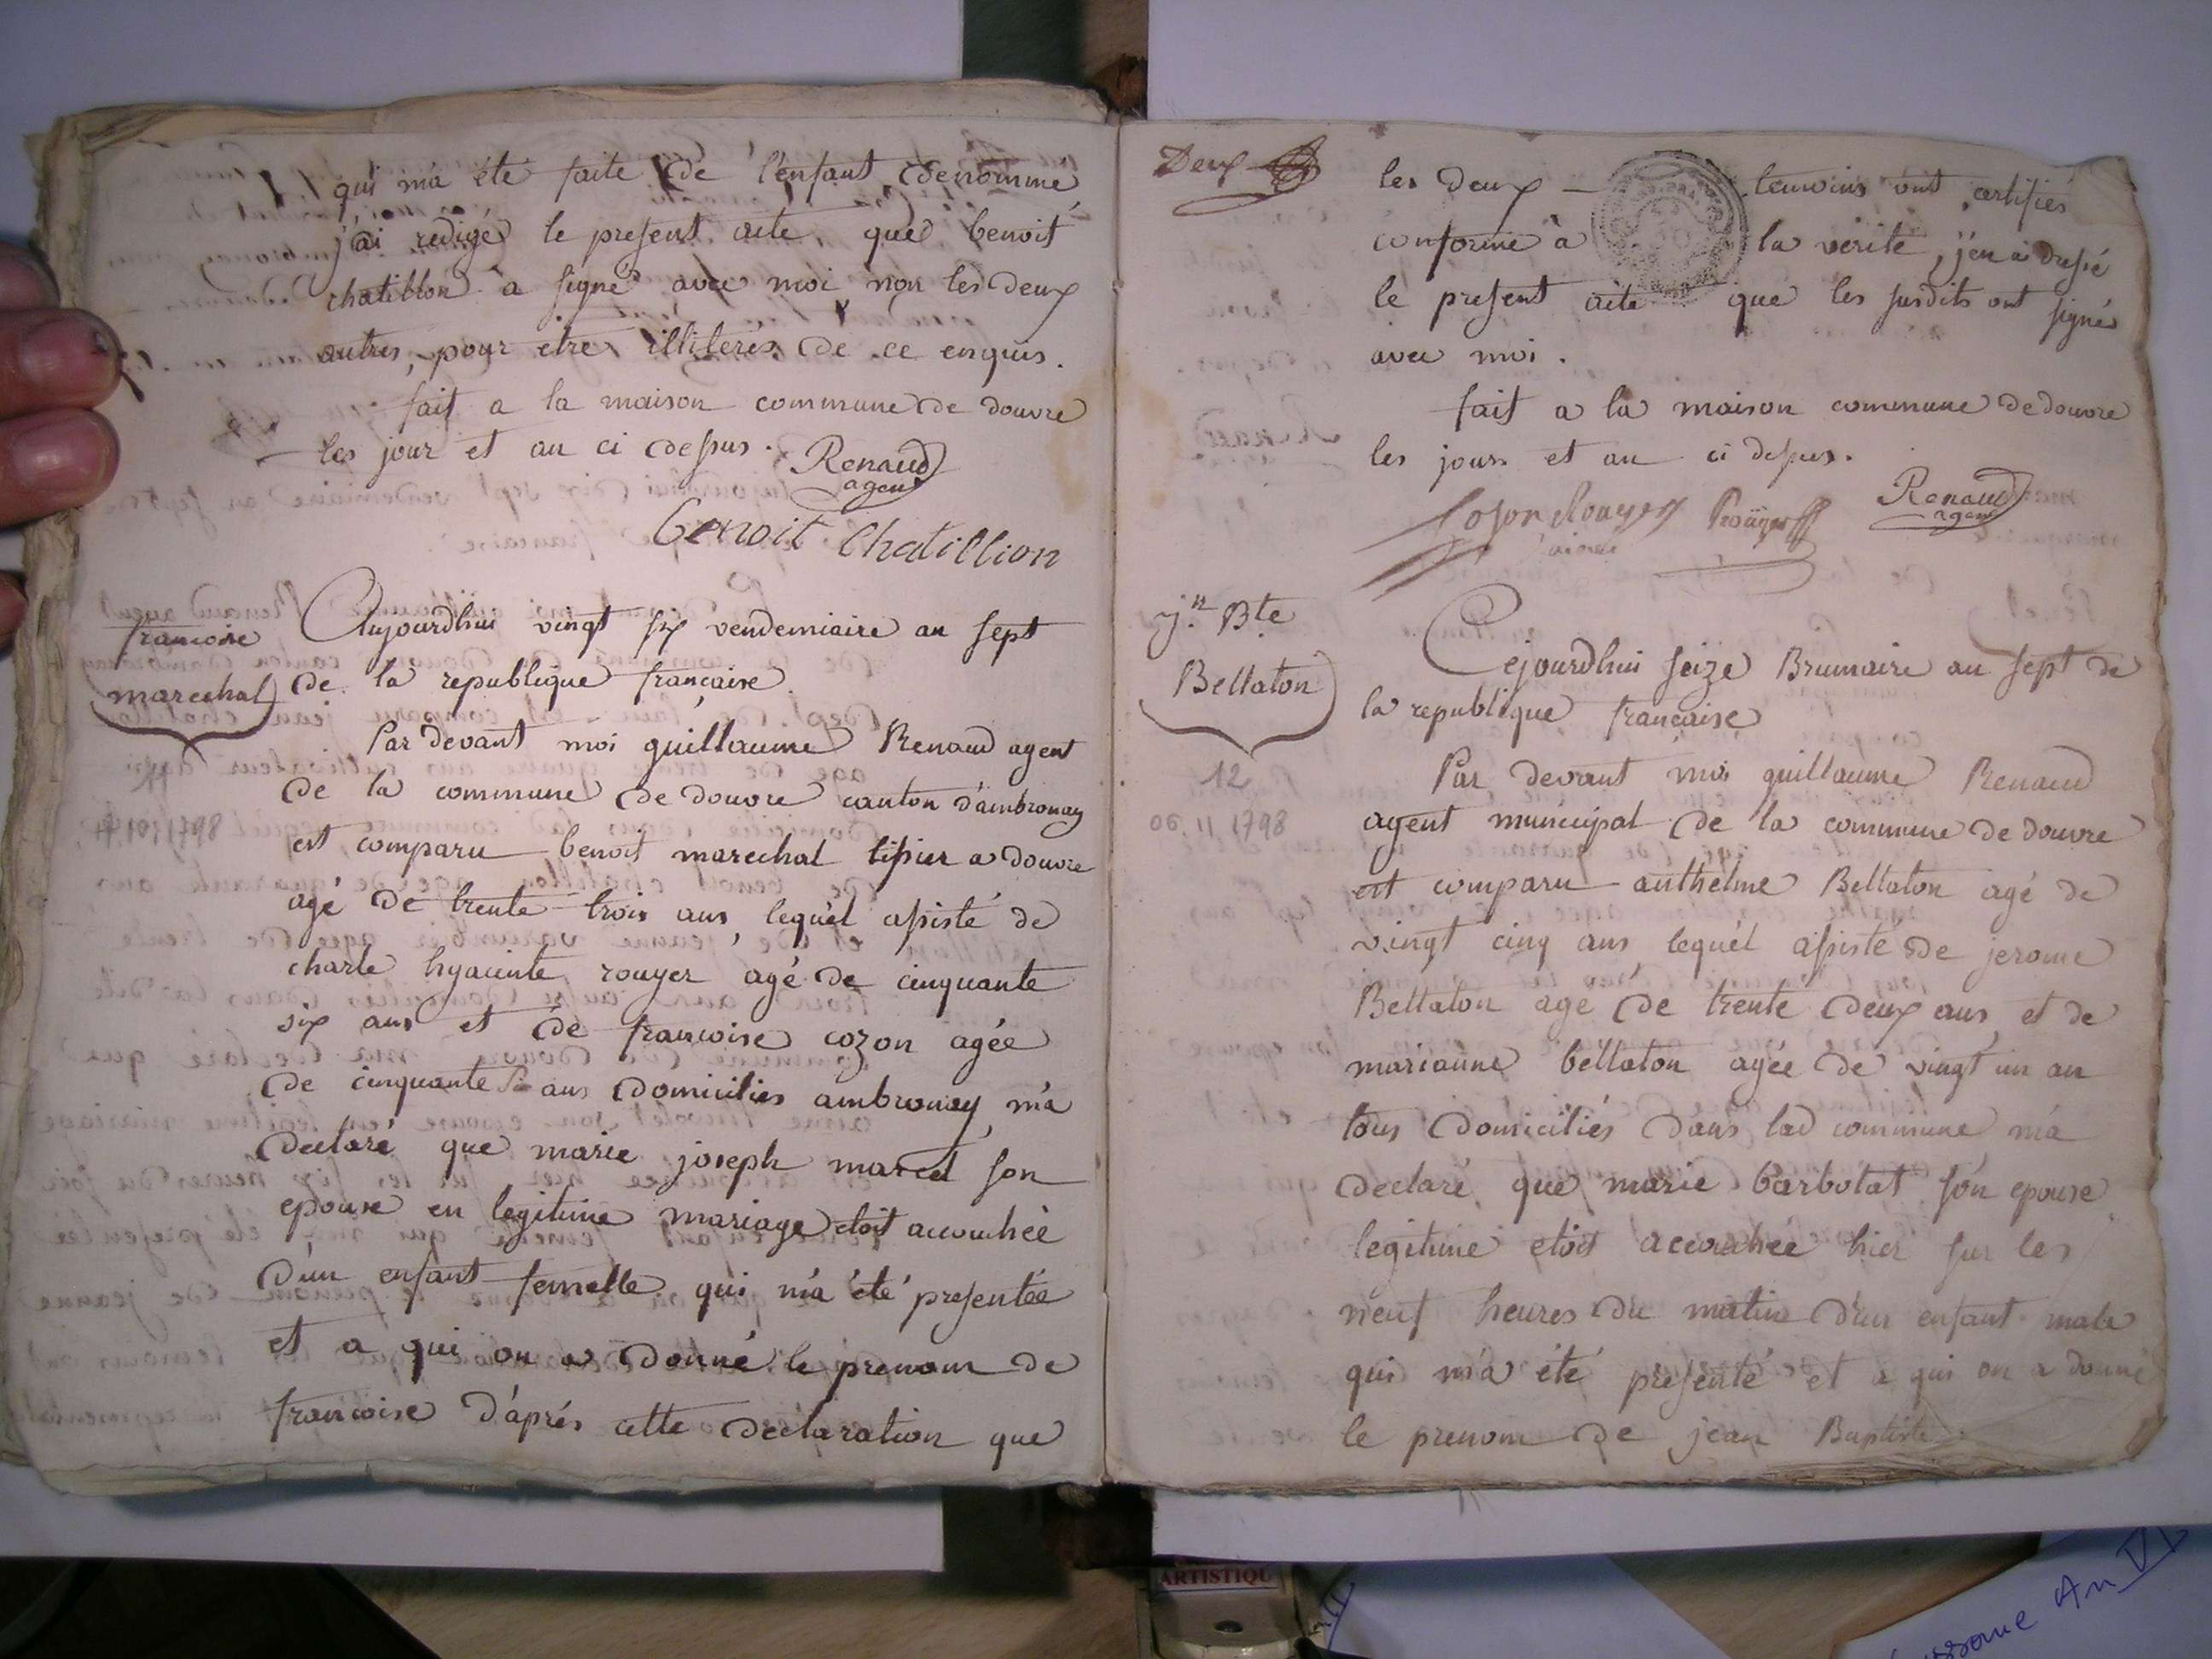 qui m'a été faite de l'enfant denommé
j'ai redigé le present acte, que benoit
chatillon a signé avec moi non les deux
autres, pour etre illiterés de ce enquis.
fait a la maison commune de douvre
les jour et an ci dessus.
Renaud
agent
Benoit Chatillion
francoise
marechal
Aujourdhui vingt six vendemiaire an sept
de la republique française.
Par devant moi guillaume Renaud agent
de la commune de douvre canton d'ambronay
est comparu benoit marechal tissier a douvre
agé de trente trois ans, lequel assisté de
charle hyacinte rouyer agé de cinquante
six ans et de francoise cozon agée
de cinquante ans domicilies ambronay, m'a
declaré que marie joseph marcel son
epouse en legitime mariage etoit accouchée
d'un enfant femelle qui m'a été presentée
et a qui on a donné le prenom de
francoise d'après cette declaration que
Deux
les deux temoins ont certifiés
conforme à la verité, j'en ai dressé
le present acte que les susdits ont signé
avec moi.
fait a la maison commune de douvre
les jours et an ci dessus.
Rouyer
Renaud
agent
jn. Bte
Bellaton
12
06.11.1798
Cejourdhui seize Brumaire an sept de
la republique française
Par devant moi guillaume Renaud
agent municipal de la commune de douvre
est comparu anthelme Bellaton agé de
vingt cinq ans lequel assisté de jerome
Bellaton age de trente deux ans et de
marianne bellaton agée de vingt un an
tous domiciliés dans lad commune m'a
declaré que marie barbotat son epouse
legitime etoit accouchée hier sur les
neuf heures du matin d'un enfant male
qui m'a été presenté et a qui on a donné
le prenom de jean Baptiste.
ARTISTIQU
An VI